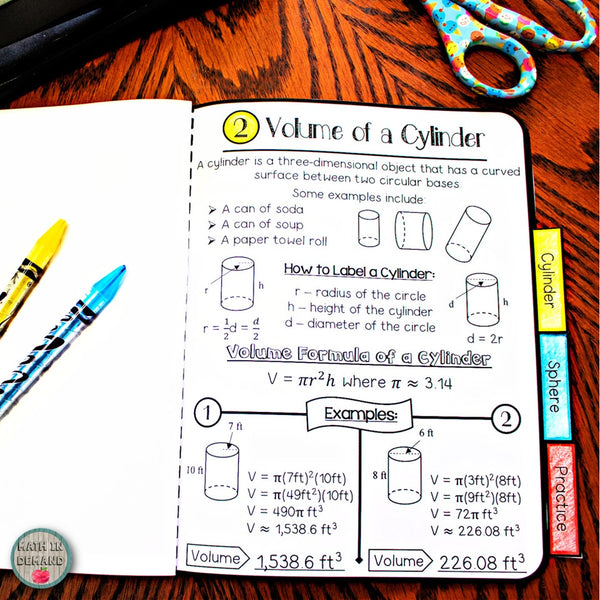 2 Volume of a Cylinder
A cylinder is a three-dimensional object that has a curved
surface between two circular bases
Some examples include:
➢ A can of soda
➢ A can of soup
➢ A paper towel roll
How to Label a Cylinder:
r
h
r – radius of the circle
h – height of the cylinder
d – diameter of the circle
r = 1/2 d = d/2
d
h
d = 2r
Volume Formula of a Cylinder
V = πr²h where π ≈ 3.14
Examples:
1
7 ft
10 ft
V = π(7ft)²(10ft)
V = π(49ft²)(10ft)
V = 490π ft³
V ≈ 1,538.6 ft³
Volume 1,538.6 ft³
2
6 ft
8 ft
V = π(3ft)²(8ft)
V = π(9ft²)(8ft)
V = 72π ft³
V ≈ 226.08 ft³
Volume 226.08 ft³
Cylinder
Sphere
Practice
MATH IN
DEMAND